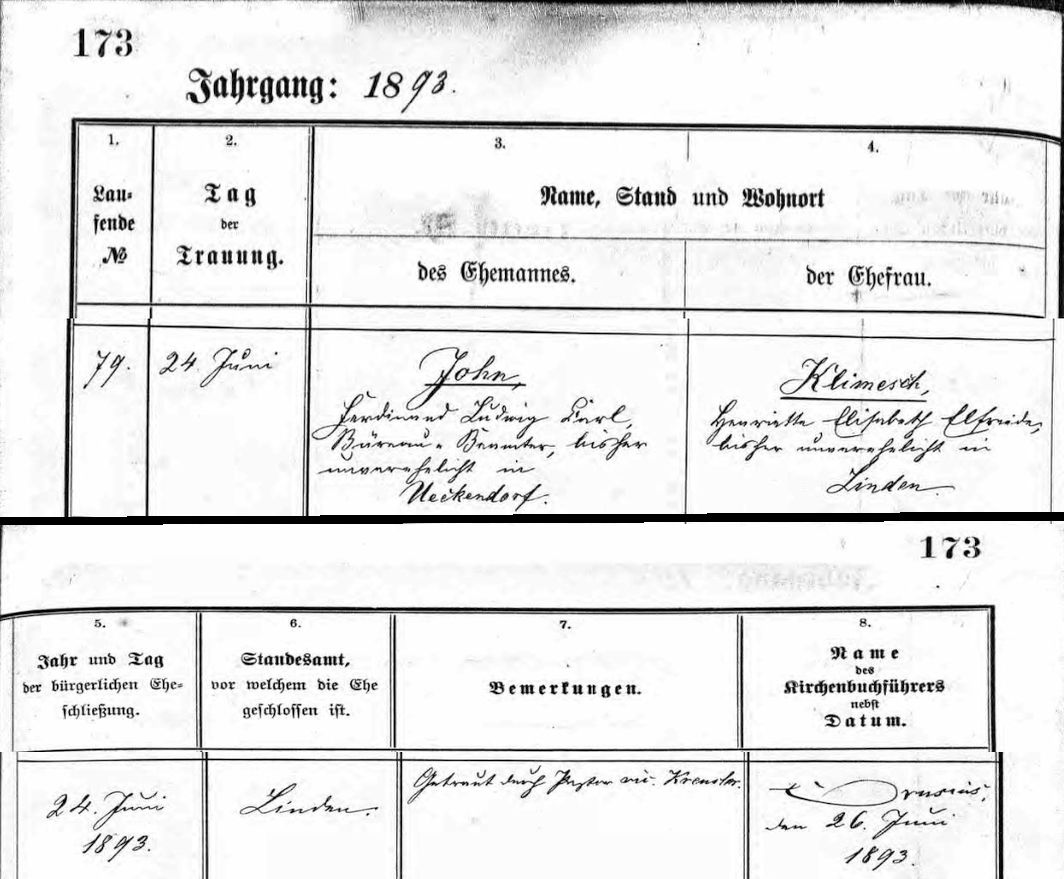 173
Jahrgang: 1893.
1.
2.
3.
4.
Lau-
fende
№
Tag
der
Trauung.
Name, Stand und Wohnort
des Ehemannes.
der Ehefrau.
79.
24. Juni
John,
Ferdinand Ludwig Carl,
Büreau-Beamter, bisher
unverehelicht in
Ueckendorf.
Klimesch,
Henriette Elisabeth Elfriede,
bisher unverehelicht in
Linden.
173
5.
6.
7.
8.
Jahr und Tag
der bürgerlichen Ehe-
schließung.
Standesamt,
vor welchem die Ehe
geschlossen ist.
Bemerkungen.
Name
des
Kirchenbuchführers
nebst
Datum.
24. Juni
1893.
Linden.
Getraut durch Pastor
den 26. Juni
1893.